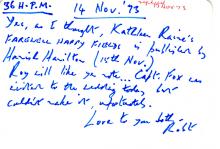 36 H.P.M. 14 Nov. '73
Yes, as I thought, Kathleen Raine's
FAREWELL HAPPY FIELDS is published by
Hamish Hamilton (15th Nov.)
Roy will like yr note... Capt. Fox was
invited to the wedding today, but
couldn't make it, unfortunately.
Love to you both,
Robt